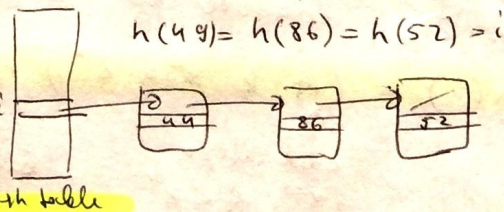 h(49) = h(86) = h(52) = i
i
44 86 52
sh table